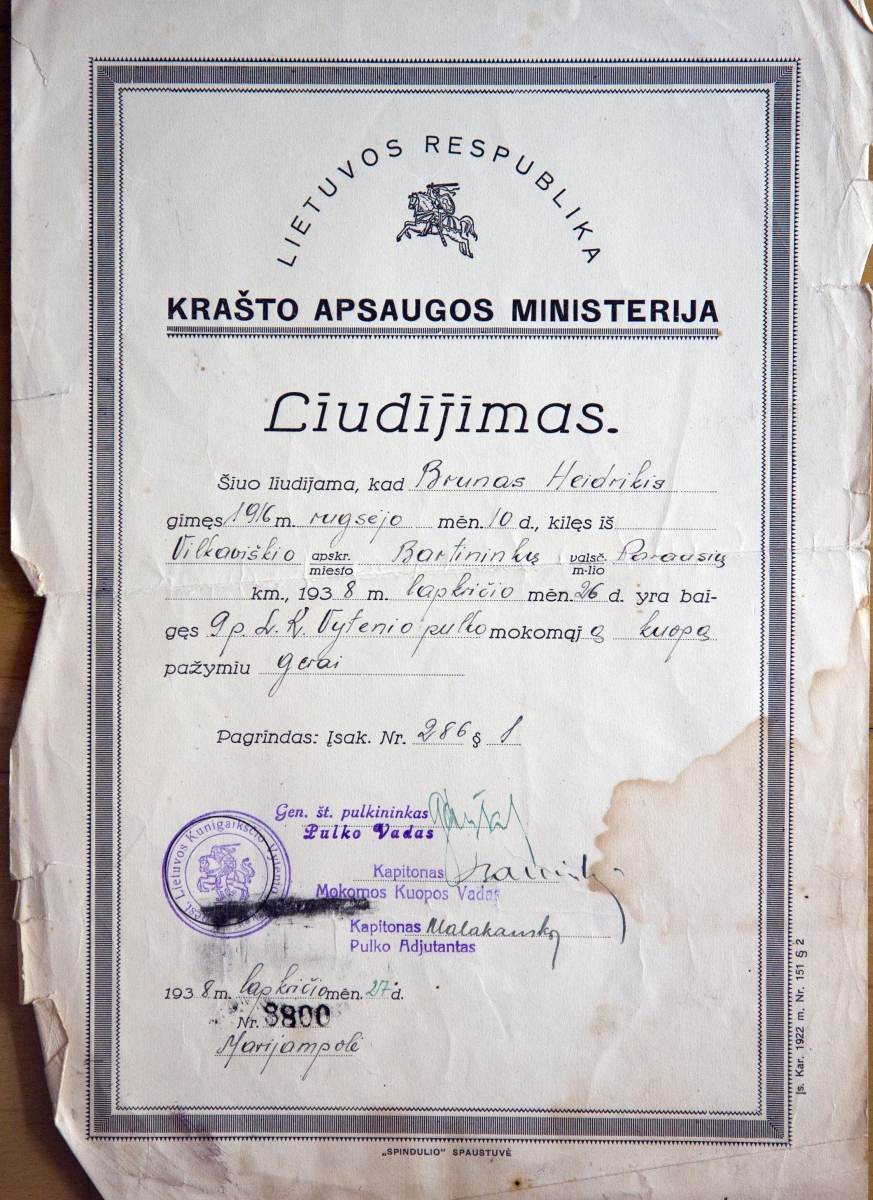 LIETUVOS RESPUBLIKA
KRAŠTO APSAUGOS MINISTERIJA
Liudijimas.
Šiuo liudijama, kad Brunas Heidrikis
gimęs 1916 m. rugsėjo mėn. 10 d., kilęs iš
Vilkaviškio apskr. miesto Bartininkų valsč. m-lio Parausių
km., 1938 m. lapkričio mėn. 26 d. yra bai-
gęs 9 p. L. K. Vytenio pulko mokomąją kuopą
pažymiu gerai
Pagrindas: Įsak. Nr. 286 § 1
Gen. št. pulkininkas
Pulko Vadas
Lietuvos Kunigaikščio Vytenio
Kapitonas
Mokomos Kuopos Vadas
Kapitonas Malakauskas
Pulko Adjutantas
1938 m. lapkričio mėn. 27 d.
Nr. 3800
Marijampolė
Įs. Kar. 1922 m. Nr. 151 § 2
„SPINDULIO" SPAUSTUVĖ